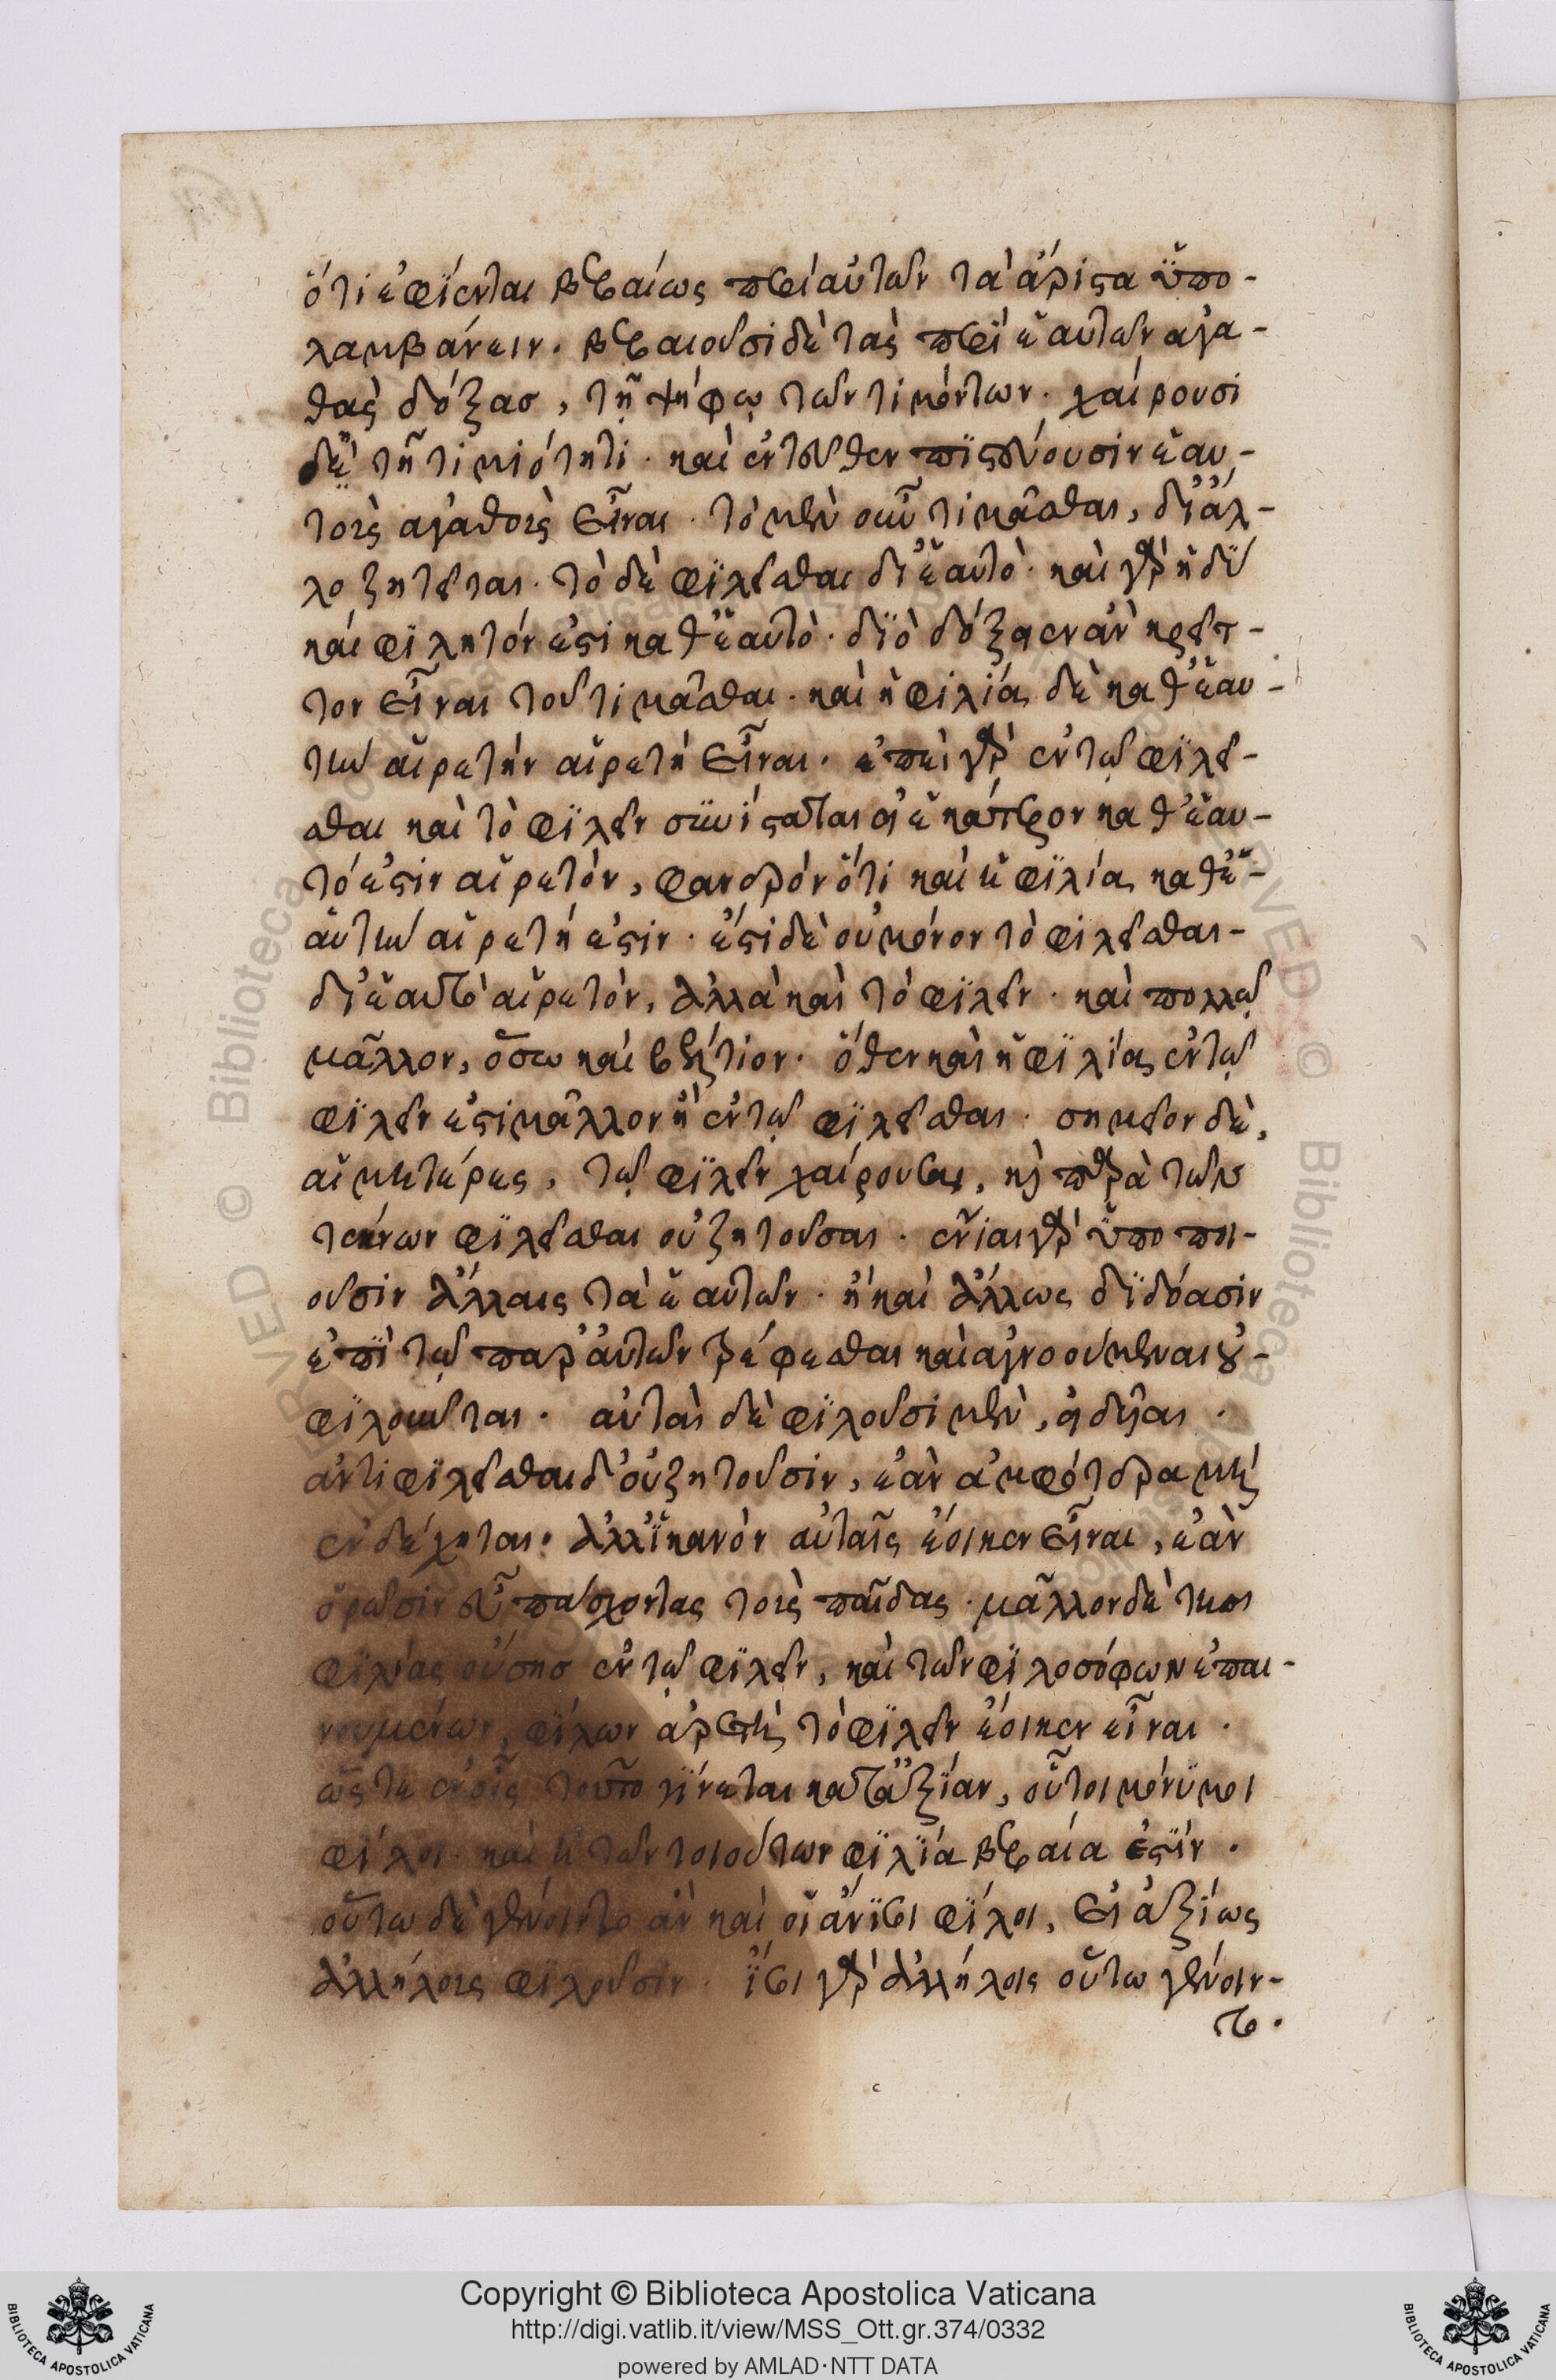 ὅτι ἐφίενται βεβαίως περὶ αὐτῶν τὰ ἄριστα ὑπο-
λαμβάνειν. βεβαιοῦσι δὲ τὰς περὶ ἑαυτῶν ἀγα-
θὰς δόξας, τῇ ψήφῳ τῶν τιμόντων. χαίρουσι
δὲ τῇ τιμιότητι. καὶ ἐντεῦθεν πιστεύουσιν ἑαυ-
τοὺς ἀγαθοὺς εἶναι. τὸ μὲν οὖν τιμᾶσθαι, δι' ἄλ-
λο ζητεῖται. τὸ δὲ φιλεῖσθαι δι' ἑαυτὸ. καὶ γὰρ ἡδὺ
καὶ φιλητόν ἐστι καθ' ἑαυτὸ. διὸ δόξῃεν ἂν κρεῖτ-
τον εἶναι τοῦ τιμᾶσθαι. καὶ ἡ φιλία δὲ καθ' ἑαυ-
τὴν αἱρετὴν αἱρετὴ εἶναι. ἐπεὶ γὰρ ἐν τῷ φιλεῖ-
σθαι καὶ τὸ φιλεῖν συνίσταται ᾗ ἑκάτερον καθ' ἑαυ-
τό ἐστιν αἱρετόν, φανερὸν ὅτι καὶ ἡ φιλία καθ' ἑ-
αυτὴν αἱρετή ἐστιν. ἔστι δὲ οὐ μόνον τὸ φιλεῖσθαι-
δι' ἑαυτὸ αἱρετὸν, ἀλλὰ καὶ τὸ φιλεῖν. καὶ πολλῷ
μᾶλλον, ὅσω καὶ βέλτιον. ὅθεν καὶ ἡ φιλία ἐν τῷ
φιλεῖν ἐστι μᾶλλον ἢ ἐν τῷ φιλεῖσθαι. σημεῖον δὲ,
αἱ μητέρες, τῷ φιλεῖν χαίρουσαι, καὶ παρὰ τῶν
τέκνων φιλεῖσθαι οὐ ζητοῦσαι. ἔνιαι γὰρ ὑποποι-
οῦσιν ἄλλαις τὰ ἑαυτῶν. ἢ καὶ ἄλλως διδόασιν
ἐπὶ τῷ παρ' αὐτῶν τρέφεσθαι καὶ ἀγνοούμεναι οὐ-
φιλοῦνται. αὐταὶ δὲ φιλοῦσι μὲν, εἰδυῖαι.
ἀντιφιλεῖσθαι δ' οὐ ζητοῦσιν, ἐὰν ἀμφότερα μὴ
ἐνδέχηται. ἀλλ' ἱκανὸν αὐταῖς ἔοικεν εἶναι, ἐὰν
ὁρῶσιν εὖ πάσχοντας τοὺς παῖδας. μᾶλλον δὲ τῆς
φιλίας οὔσης ἐν τῷ φιλεῖν, καὶ τῶν φιλοσόφων ἐπαι-
νουμένων, φίλων ἀρετὴ τὸ φιλεῖν ἔοικεν εἶναι.
ὥστε ἐν οἷς τοῦτο γίνεται κατ' ἀξίαν, οὗτοι μόνιμοι
φίλοι. καὶ ἡ τῶν τοιούτων φιλία βεβαία ἐστίν.
οὕτω δὲ γένοιντο ἂν καὶ οἱ ἄνισοι φίλοι, εἰ ἀξίως
ἀλλήλους φιλοῦσιν. ἴσοι γὰρ ἀλλήλοις οὕτω γένοιν-
το.
Copyright © Biblioteca Apostolica Vaticana
http://digi.vatlib.it/view/MSS_Ott.gr.374/0332
powered by AMLAD·NTT DATA
BIBLIOTECA APOSTOLICA VATICANA
BIBLIOTECA APOSTOLICA VATICANA